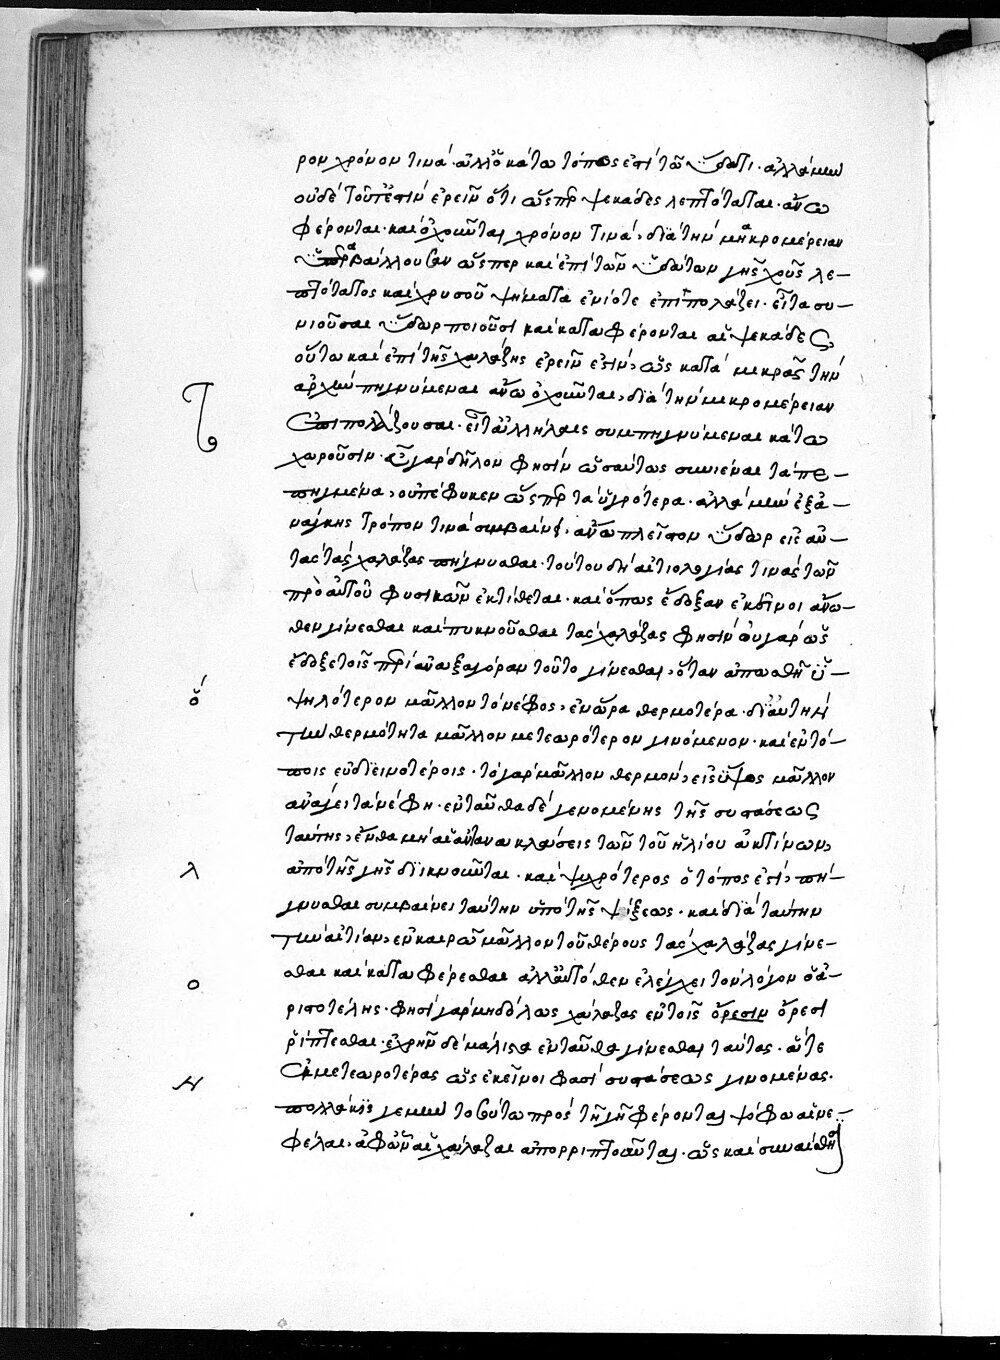 ρον χρόνον τινά· ἀλλ' οὐ κάτω τόπος ἐστὶ τῶ ὕδατι· ἀλλὰ μὴν
οὐδὲ τοῦτ' ἔστιν ἐρεῖν ὅτι ὥσπερ ψεκάδες λεπτόταται ἄνω
φέρονται καὶ ὀχοῦνται χρόνον τινά, διὰ τὴν μικρομέρειαν
ὥσπερ καὶ ἐπὶ τῶν ὑδάτων γῆς χοῦς λε-
πτότατος καὶ χρυσοῦ ψήματα ἐνίοτε ἐπιπολάζει· εἶτα συ-
νιοῦσαι ὕδωρ ποιοῦσι καὶ κάτω φέρονται αἱ ψεκάδες
οὕτω καὶ ἐπὶ τῆς χαλάζης ἐρεῖν ἐστίν, ὡς κατὰ μικρὰς τὴν
ἀρχὴν πηγνύμεναι ἄνω ὀχοῦνται, διὰ τὴν μικρομέρειαν
ἐπιπολάζουσαι· εἶτ' ἀλλήλαις συμπηγνύμεναι κάτω
χωροῦσιν· οὐ γὰρ δῆλον φησὶν ὡσαύτως συνιέναι τὰ πε-
πηγμένα, οὐ πέφυκεν ὥσπερ τὰ ὑγρότερα· ἀλλὰ μὴν ἐξ ἀ-
νάγκης τρόπον τινὰ συμβαίνει, ἄνω πλεῖστον ὕδωρ εἰς αὐ-
τὰς τὰς χαλάζας πήγνυσθαι· τούτου δὴ αἰτιολογίας τινὰς τῶν
πρὸ αὐτοῦ φυσικῶν ἐκτίθεται· καὶ ὅπως ἔδοξαν ἐκεῖνοι ἄνω-
θεν γίνεσθαι καὶ πυκνοῦσθαι τὰς χαλάζας φησὶν οὐ γὰρ ὡς
ἔδοξε τοῖς περὶ ἀναξαγόραν τοῦτο γίνεσθαι, ὅταν ἀπωσθῆ ὑ-
ψηλότερον μᾶλλον τὸ νέφος, ἐν ὥρα θερμοτέρα· δι' αὐτὴν
τὴν θερμότητα μᾶλλον μετεωρότερον γινόμενον· καὶ ἐν τό-
ποις εὐδιεινοτέροις· τὸ γὰρ μᾶλλον θερμὸν, εἰς ὕψος μᾶλλον
ἀνάγει τὰ νέφη· ἐνταῦθα δὲ γενομένης τῆς συστάσεως
ταύτης, ἔνθα μὴ αἱ ἀνακλάσεις τῶν τοῦ ἡλίου ἀκτίνων,
ἀπὸ τῆς γῆς διικνοῦνται· καὶ ψυχρότερος ὁ τόπος ἐστὶ, πή-
γνυσθαι συμβαίνει ταύτην ὑπὸ τῆς ψύξεως· καὶ διὰ ταύτην
τὴν αἰτίαν, ἐν καιρῶ μᾶλλον τοῦ θέρους τὰς χαλάζας γίνε-
σθαι καὶ κάτω φέρεσθαι ἀλλ' αὐτόθεν ἐλέγχει τὸν λόγον ὁ ἀ-
ριστοτέλης· φησὶ γὰρ μηδόλως χαλάζας ἐν τοῖς ὄρεσιν ὄρεσι
ῥίπτεσθαι· ἐχρῆν δὲ μάλιστα ἐνταῦθα γίνεσθαι ταύτας· ἅτε
ἐκ μετεωροτέρας ὡς ἐκεῖνοι φασὶ συστάσεως γινομένας·
πολλάκις γε μὴν τοιούτω πρὸς τῆ γῆ φέρονται ψόφω αἱ νε-
φέλαι, ἀφ' ὧν αἱ χάλαζαι ἀπορριπτοῦνται· ὡς καὶ συναισθή
ὅ
λ
ο
η